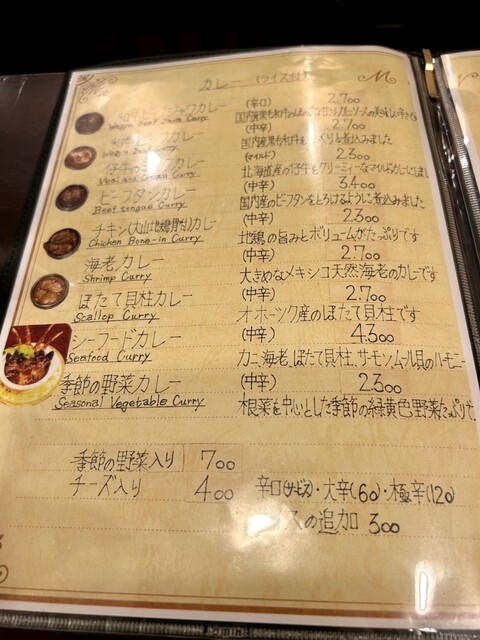 カレー (ライス付)
M
和牛ビーフジャワカレー (辛口) 2.700
Wagyu Beef Java Curry 国内産黒毛和牛の
和牛ビーフカレー (中辛) 2.700
Wagyu Beef Curry 国内産黒毛和牛をじっくりと煮込みました
仔牛のクリームカレー (マイルド) 2.500
Veal and Cream Curry 北海道産の仔牛をクリーミーなマイルドカレーにしました
ビーフタンカレー (中辛) 3.400
Beef tongue Curry 国内産のビーフタンをとろけるように煮込みました
チキン(大山地鶏骨付)カレー (中辛) 2.300
Chicken Bone-in Curry 地鶏の旨みとボリュームがたっぷりです
海老カレー (中辛) 2.700
Shrimp Curry 大きめなメキシコ天然海老のカレーです
ほたて貝柱カレー (中辛) 2.700
Scallop Curry オホーツク産のほたて貝柱です
シーフードカレー (中辛) 4.300
Seafood Curry カニ、海老、ほたて貝柱、サーモン、ムール貝のハーモニー
季節の野菜カレー (中辛) 2.300
Seasonal Vegetable Curry 根菜を中心とした季節の緑黄色野菜たっぷりで
季節の野菜入り 700
チーズ入り 400 辛口(サービス)・大辛(60)・極辛(120)
の追加 300